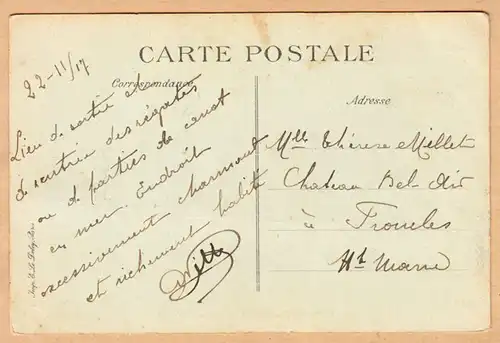 CARTE POSTALE
Correspondance
Adresse
22-11/17
Lieu de sortie et
de rentrée des régates
ou de parties de canot
en mer. Endroit
excessivement charmant
et richement habité
Mlle Thérèse Millet
Chateau Bel-Air
à Froncles
Hte Marne